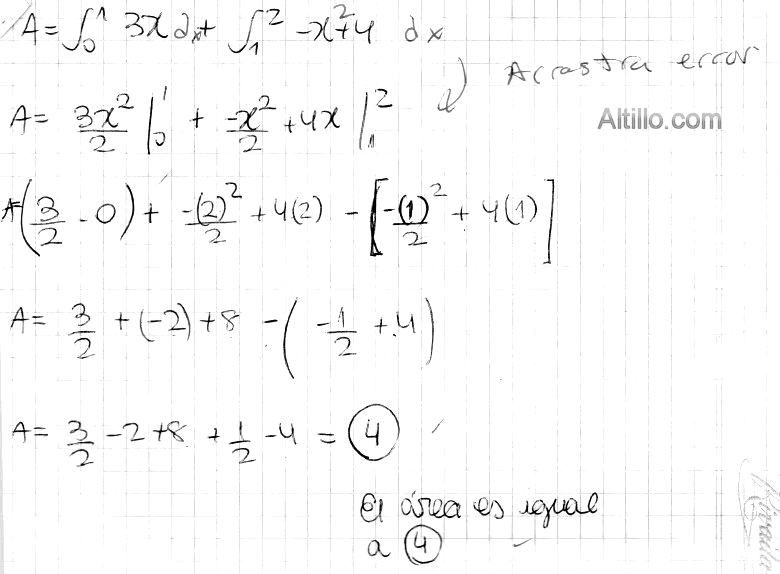 A = ∫₀¹ 3x dx + ∫₁² -x²+4 dx
Arrastra error
A = 3x²/2 |₀¹ + -x²/2 + 4x |₁²
Altillo.com
A = (3/2 - 0) + -(2)²/2 + 4(2) - [-(1)²/2 + 4(1)]
A = 3/2 + (-2) + 8 - (-1/2 + 4)
A = 3/2 - 2 + 8 + 1/2 - 4 = 4
El área es igual
a 4